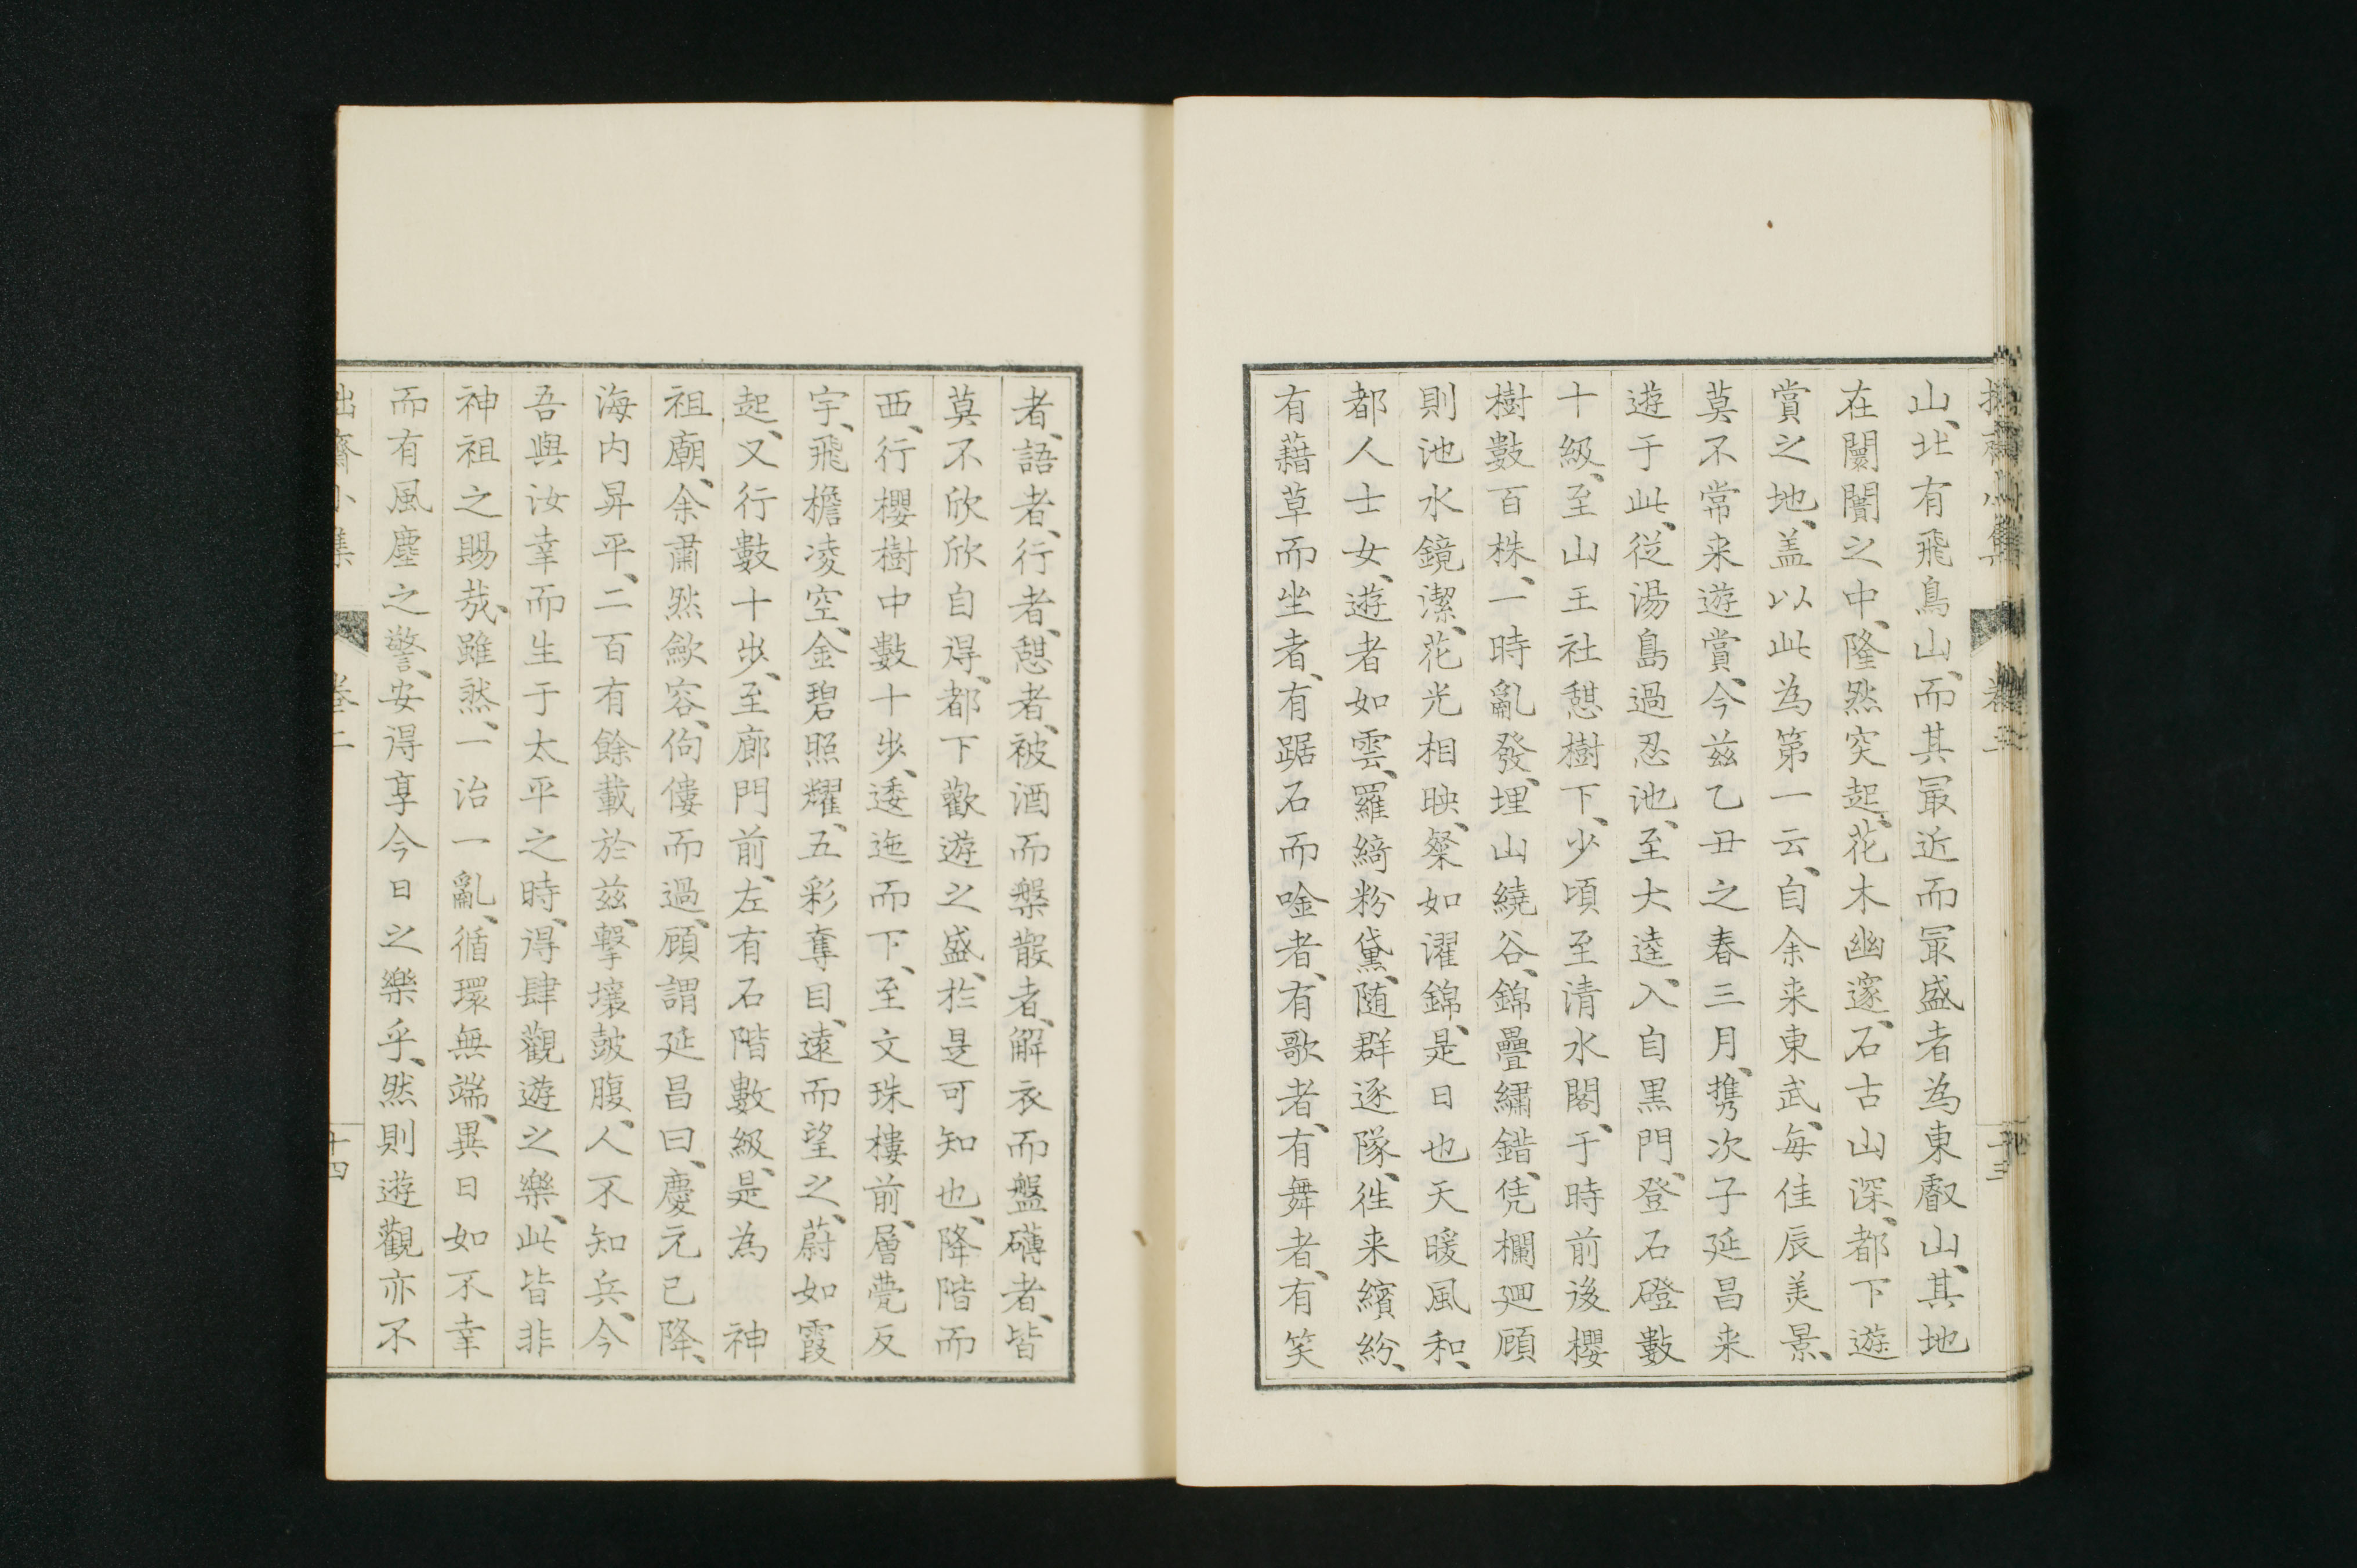 山、北有飛鳥山、而其冣近而冣盛者為東叡山、其地
在闤闠之中、隆然突起、花木幽邃、石古山深、都下遊
賞之地、盖以此為第一云、自余来東武、每佳辰美景、
莫不常来遊賞、今兹乙丑之春三月、携次子延昌来
遊于此、従湯島過忍池、至大逵、入自黒門、登石磴數
十級、至山王社憩樹下、少頃至清水閣、于時前後櫻
樹數百株、一時亂發、埋山繞谷、錦疊繡錯、凭欄廻顧
則池水鏡潔、花光相映、粲如濯錦、是日也天暖風和、
都人士女、遊者如雲、羅綺粉黛、随群逐隊、徃来繽紛、
有藉草而坐者、有踞石而唫者、有歌者、有舞者、有笑
者、語者、行者、憩者、被酒而槃散者、解衣而盤礴者、皆
莫不欣欣自得、都下歡遊之盛、於是可知也、降階而
西、行櫻樹中數十步、逶迤而下、至文珠樓前、層甍反
宇、飛檐凌空、金碧照耀、五彩奪目、遠而望之、蔚如霞
起、又行數十步、至廊門前、左有石階數級、是為　神
祖廟、余肅然歛容、佝僂而過、顧謂延昌曰、慶元已降、
海内昇平、二百有餘載於兹、擊壤鼓腹、人不知兵、今
吾與汝幸而生于太平之時、得肆觀遊之樂、此皆非
神祖之賜哉、雖然、一治一亂、循環無端、異日如不幸
而有風塵之警、安得享今日之樂乎、然則遊觀亦不
拙齋小集　卷二　十四